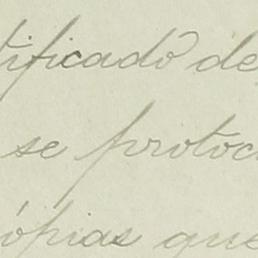 tificado de
se protoc
ópias que